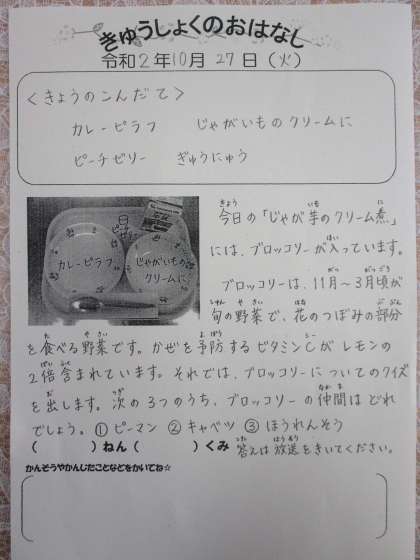 きゅうしょくのおはなし
令和2年10月27日(火)
<きょうのこんだて>
カレーピラフ　じゃがいものクリームに
ピーチゼリー　ぎゅうにゅう
カレーピラフ
じゃがいもの
クリームに
今日の「じゃが芋のクリーム煮」
には、ブロッコリーが入っています。
ブロッコリーは、11月～3月頃が
旬の野菜で、花のつぼみの部分
を食べる野菜です。かぜを予防するビタミンCがレモンの
2倍含まれています。それでは、ブロッコリーについてのクイズ
を出します。次の3つのうち、ブロッコリーの仲間はどれ
でしょう。①ピーマン ②キャベツ ③ほうれんそう
(　　)ねん(　　)くみ 答えは放送をきいてください。
かんそうやかんじたことなどをかいてね☆